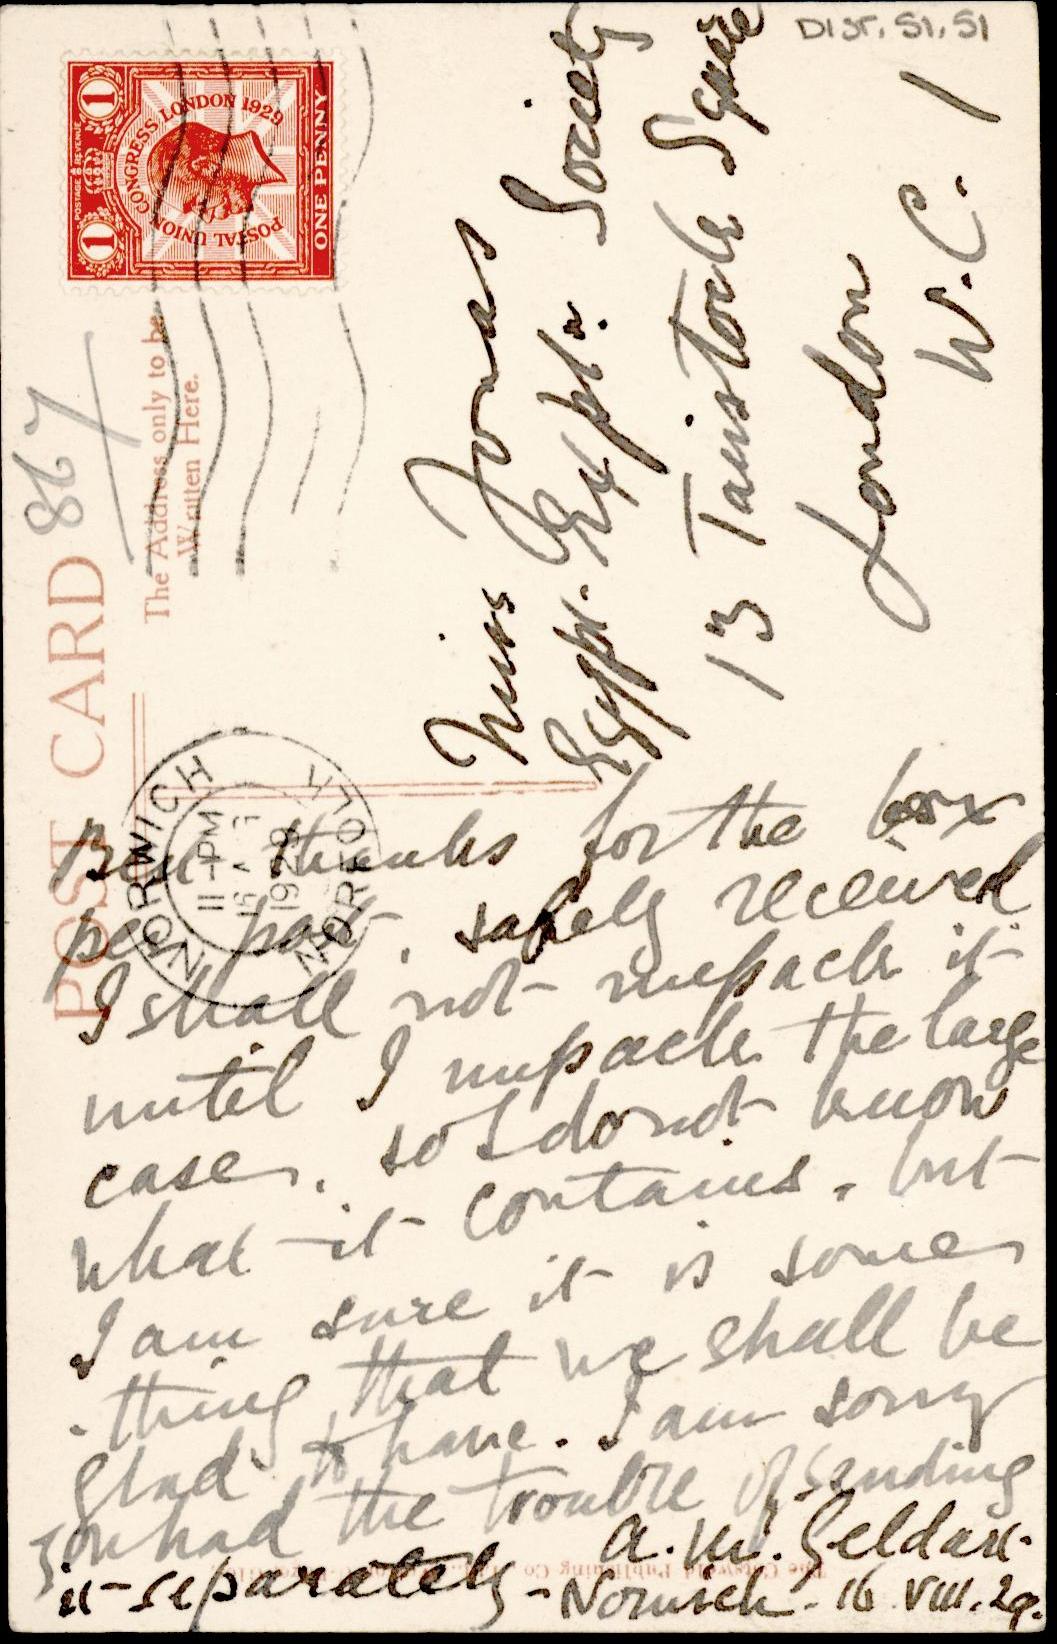 DIST. 51.51
867
POST CARD
The Address only to be
Written Here.
POSTAGE & REVENUE
1
1
POSTAL UNION CONGRESS LONDON 1929
ONE PENNY
NORWICH
11-PM
16 AUG
1929
NORFOLK
Miss Jonas
Egypt. Expln. Society
13 Tavistock Square
London
W.C. 1
Best thanks for the box
per post, safely received
I shall not unpack it
until I unpack the large
case, so I do not know
what it contains, but
I am sure it is some
-thing that we shall be
glad to have. I am sorry
you had the trouble of sending
it separately -
A. M. Geldart.
Norwich. 16 VIII. 29.
The Cotswold Publishing Co